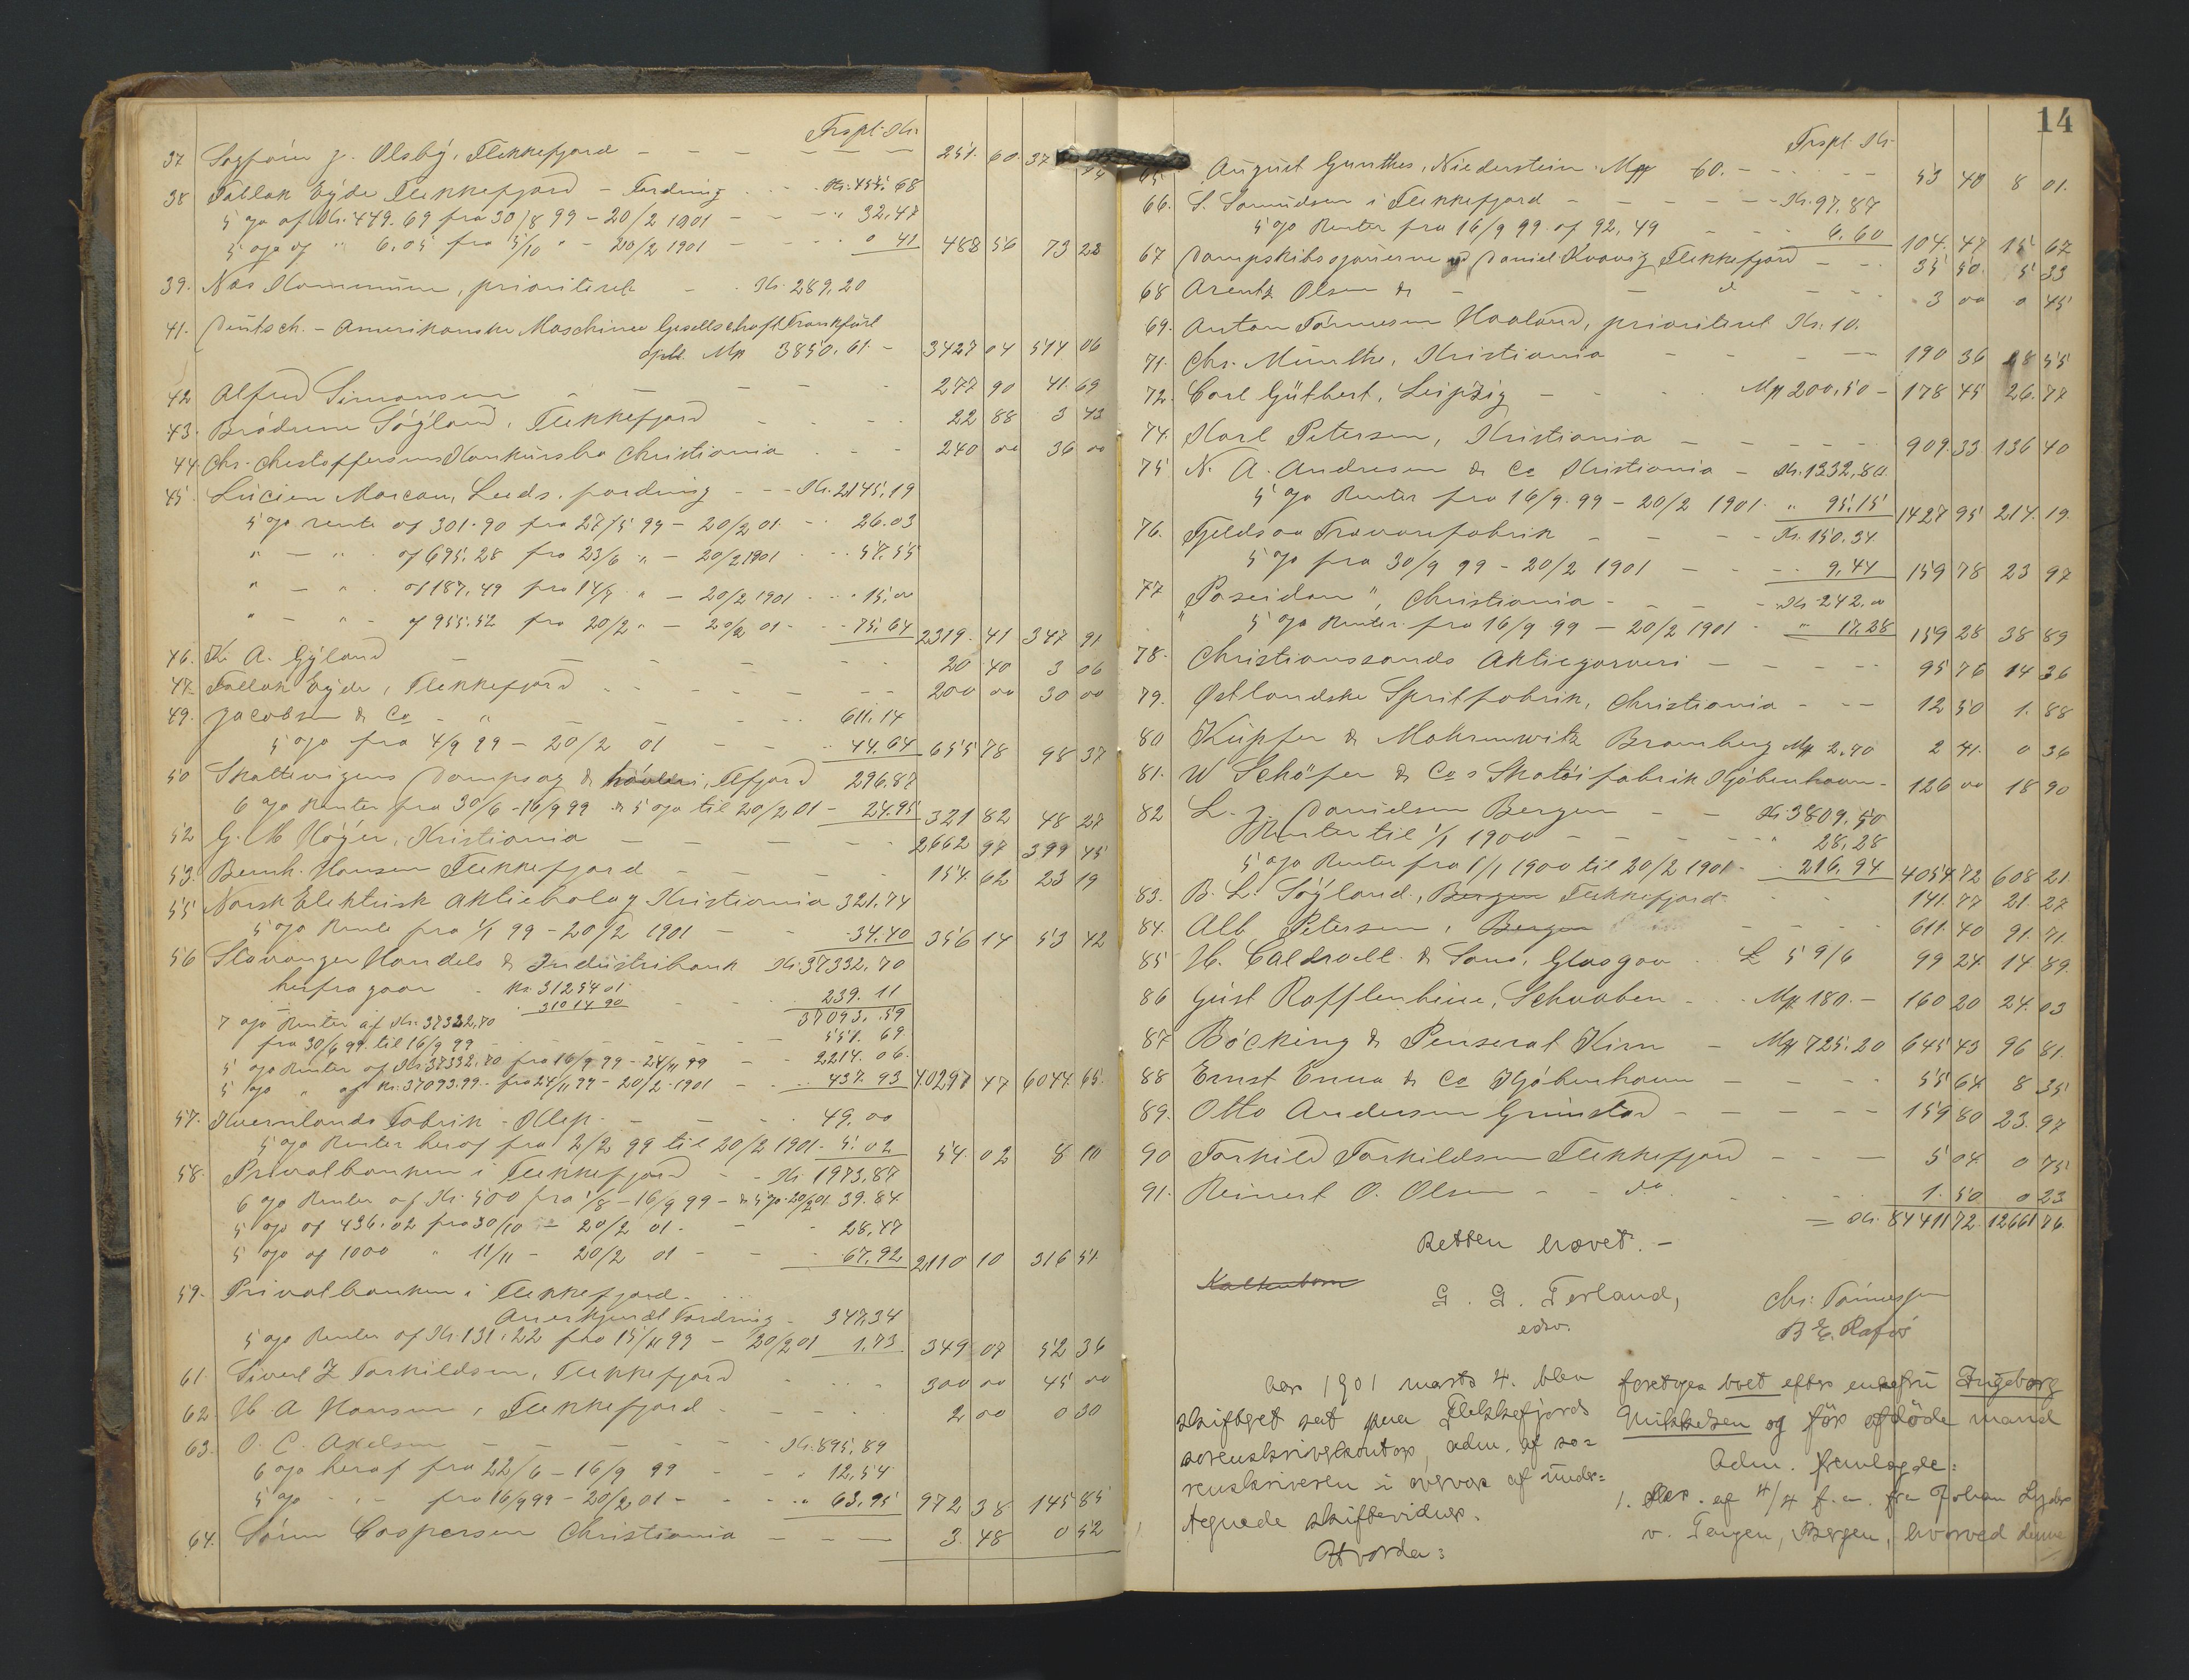 Trspt. Kr.
37 Sagfører J. Olsby, Flekkefjord - - - - - - 251. 60. 37 74
38 Tallak Eyde Flekkefjord - Fordring - - Kr. 455. 68
5 % af Kr. 449. 69 fra 30/8 99 - 20/2 1901 - - - " 32,47
5 % af " 6,05 fra 5/10 " - 20/2 1901 - - - " 0 41 488 56 73 28
39. Næs Kommune, prioriteret - - Kr. 289,20
41. Deutsch.- Amerikanske Maschinen Gesellschaft Frankfurt
opr. Mk 3850. 61. - 3427 04 514 06
42 Alfred Simonsen " - - - - 277 90 41. 69
43. Brødrene Søyland, Flekkefjord - - - - 22 88 3 43
44. Chr. Christoffersens Konkursbo Christiania - - - 240 00 36 00
45. Lucien Marcan, Leeds. fordring - - - Kr. 2145,19
5 % rente af 301. 90 fra 27/5 99 - 20/2 01 - - 26. 03
" - " - af 695. 28 fra 23/6 " - 20/2 1901 - - 57. 55
" - " - af 187. 49 fra 14/7 " - 20/2 1901 - - " 15,00
" - " - af 955. 52 fra 20/2 " - 20/2 01 - - 75. 64 2319. 41 347 91
46. K. A. Gyland - - - - - - - 20 40 3 06
47. Tallak Eyde, Flekkefjord - - - - - - 200 00 30 00
49. Jacobsen & Co - " - - - - 611. 14
5 % fra 4/9 99 - 20/2 01 - - - 44. 64 655 78 98 37
50 Skattevigens Dampsag & høvleri, Elfjord 296. 87
6 % Renter fra 30/6 - 16/9 99 & 5 % til 20/2 01 - 24. 95 321 82 48 27
52 G. M Høyer, Kristiania - - - - - - 2662 97 399 45
53. Bernh. Hansen Flekkefjord - - - - - 154. 62 23 19
55 Norsk Elektrisk Aktiebolag Kristiania 321. 74
5 % Rente fra 1/1 99 - 20/2 1901 - - - 34. 40 356 14 53 42
56 Stavanger Handels & Industribank Kr. 37332. 70
herfra gaar - Kr. 31254 01
31014 90 - - - 239. 11
37093. 59
7 % Renter af Kr. 37332. 70
fra 30/6 99. til 16/9 99 - - - - - 551. 69
5 % Renter af Kr. 37332. 70 fra 16/9 99 - 24/11 99 - - 2214. 06
5 % " af Kr. 37093. 99 - fra 24/11 99 - 20/2 1901 - - 437. 93 40297 47 6044 65
57. Kvernlands Fabrik - Klep - - - - 49. 00
5 % Renter heraf fra 2/2 99 til 20/2 1901 - 5. 02 54. 02 8 10
58. Privatbanken i Flekkefjord - - Kr. 1973. 87
6 % Renter af Kr. 500 fra 1/8 - 16/9 99 - & 5 % 20/2 01 39. 84
5 % af 436. 02 fra 30/10 - 20/2 01 - - - 28,47
5 % af 1000 " 11/11 - 20/2 01 - - - 67. 92 2110 10 316 51
59. Privatbanken i Flekkefjord. - - -
Anerkjendt Fordring - 347,34
5 % Renter af Kr. 131. 22 fra 15/11 99 - 20/2 01 1. 73 349 07 52 36
61. Sivert Z Torkildsen, Flekkefjord - - - - 300 00 45 00
62. H A Hansen, Flekkefjord - - - - 2 00 0 30
63. O. C. Axelsen - - - - - Kr. 895. 89
6 % heraf fra 22/6 - 16/9 99 - - - " 12,54
5 % - " - fra 16/9 99 - 20/2 01 - - - " 63,95 972 38 145 85
64. Søren Caspersen Christiania - - - 3. 48 0 52
14
Trspt. Kr.
65. August Gunthes, Niederstein. Mk 60. - - - - 53 40 8 01.
66. S. Samuelsen i Flekkefjord - - - - - Kr. 97. 87
5 % Renter fra 16/9 99 af 92. 49 - - - 6. 60 104. 47 15 67
67 Dampskibsopgaverne v Daniel Kvavig Flekkefjord - - 35 50 5 33
68 Arentz Olsen & - - - 3 00 0 45
69. Anton Tønnesen Haaland, prioriteret Kr. 10.
71. Chr. Munthe, Kristiania - - - - 190 36 28 55
72. Carl Gütbert, Leipzig - - - Mk 200. 50 - 178 45 26. 77
74. Karl Petersen, Kristiania - - - - - 909. 33 136 40
75 N. A. Andresen & Co Kristiania - Kr. 1332. 80
5 % Renter fra 16/9. 99 - 20/2 1901. " 95. 15 1427 95 214. 19.
76. Fjeldsaa Trævarefabrik - - - - Kr. 150. 34
5 % fra 30/9 99 - 20/2 1901 - - - - 9. 44 159 78 23 97
77 "Poseidon", Christiania - - - Kr. 242. 00
5 % Renter fra 16/9 99 - 20/2 1901 - " 17. 28 159 28 38 89
78. Christianssands Aktiegarveri - - - - - 95 76 14 36
79. Østlandske Spritfabrik, Christiania - - - 12 50 1. 88
80 Küpfer & Mokrenwitz Bromberg Mk 2. 70 2 41. 0 36
81. W Schöfer & Co s Skotøifabrik Kjøbenhavn - 126 00 18 90
82 L. J. Danielsen Bergen - - Kr. 3809. 50
Renter til 1/1 1900 - - - - " 28. 28
5 % Renter fra 1/1 1900 til 20/2 1901 - 216. 94 4054 72 608 21.
83. B. L. Søyland, Bergen Flekkefjord - - - 141. 77 21. 27
84. Alb Petersen, Bergen - - - - 611. 40 91. 71.
85 H. Caldwell. & Sons, Glasgow. £ 5 9/6 99 24 14 89.
86 Gust Rafflenbeul, Schwaben - - Mk 180. - 160 20 24. 03
87 Böcking & Penserat Kirn - Mk 725. 20 645 43 96 81.
88 Ernst Enna & Co Kjøbenhavn - - - - 55 64 8 35
89. Otto Andersen Grimstad - - - - - - 159 80 23. 97
90 Torkild Torkildsen Flekkefjord - - - 5 04. 0 75
91. Reinert O. Olsen - - do - - - - 1. 50 0 23
= Kr. 84411 72. 12661 76.
Retten hævet. -
Kaltenborn
G. G. Terland, Chr. Tønnessen
edsv. B E. Rafos
Aar 1901 marts 4. blev
skifteret sat paa Flekkefjords
sorenskriverkontor, adm. af so=
renskriveren i overvær af under=
tegnede skiftevidner.
Hvorda:
foretoges boet efter enkefru Ingeborg
Mikkelsen og før afdöde mand
Adm. fremlagde:
1. Skr. af 4/4 f. a. fra Johan Lyder
v. Tangen, Bergen, hvorved denne